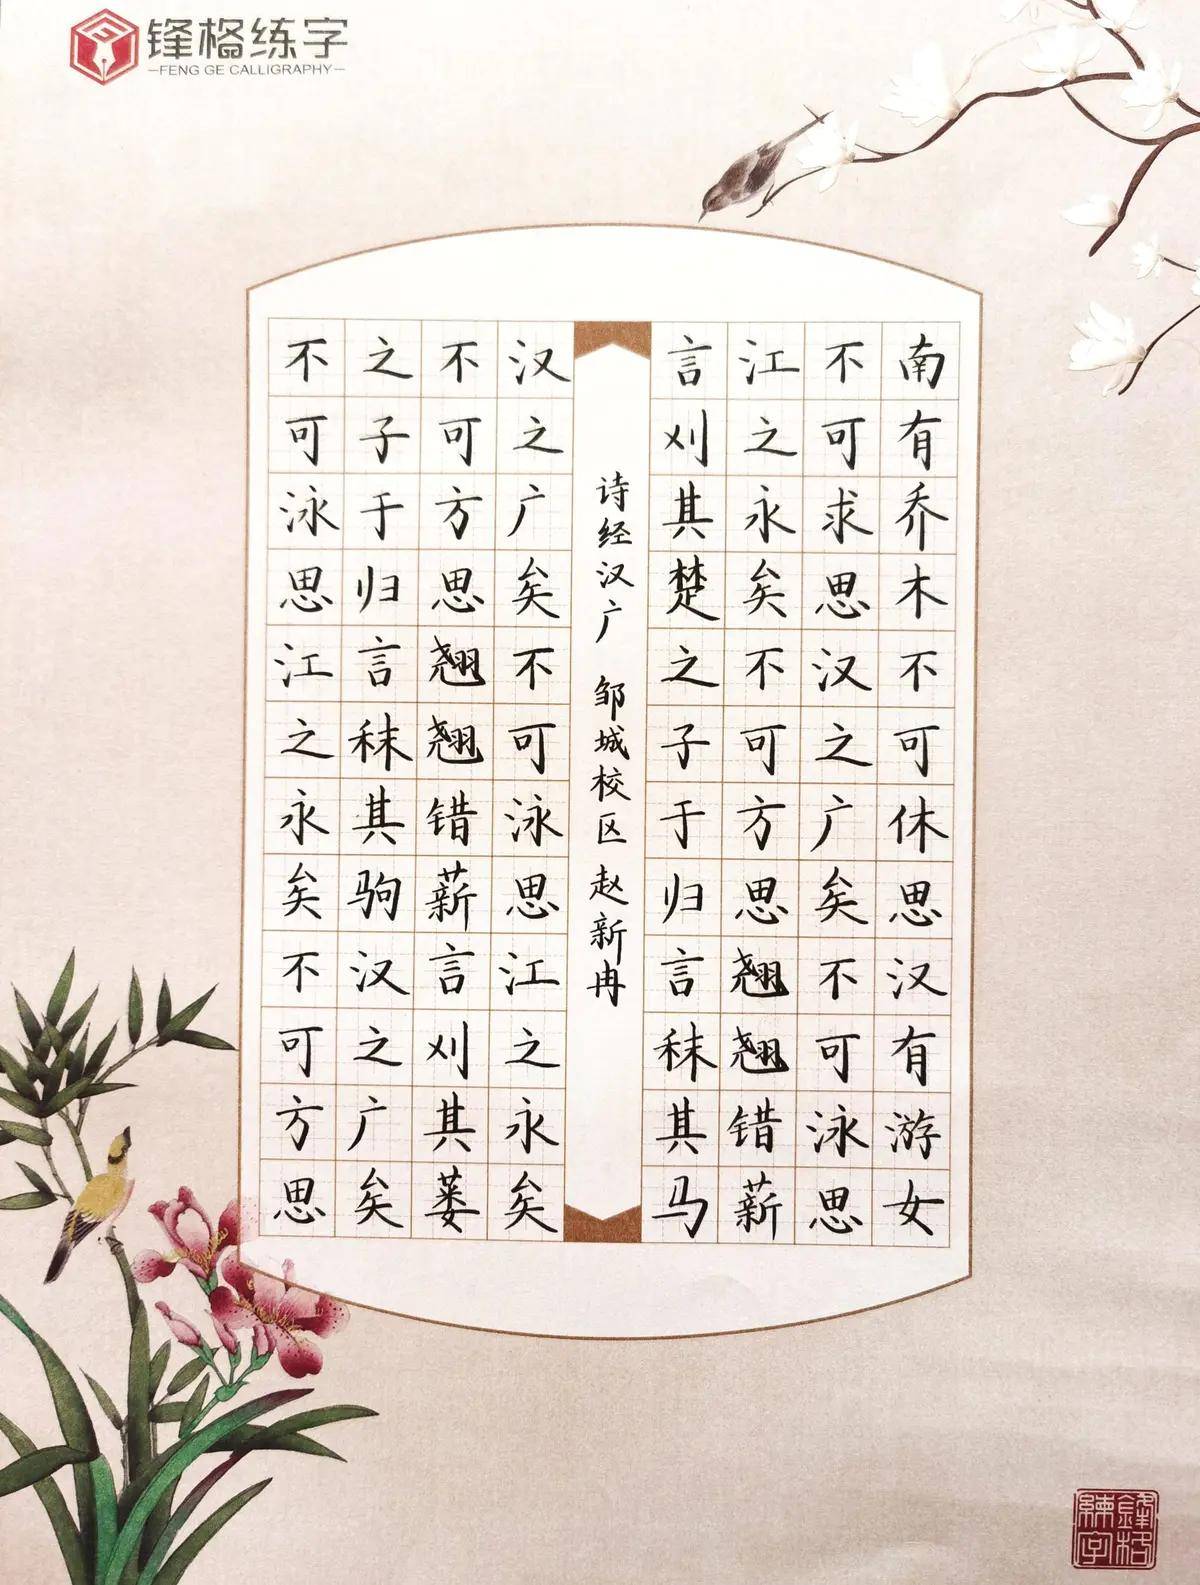 锋格练字
FENG GE CALLIGRAPHY
南有乔木不可休思汉有游女
不可求思汉之广矣不可泳思
江之永矣不可方思翘翘错薪
言刈其楚之子于归言秣其马
诗经汉广 邹城校区赵新冉
汉之广矣不可泳思江之永矣
不可方思翘翘错薪言刈其蒌
之子于归言秣其驹汉之广矣
不可泳思江之永矣不可方思
鋒格
練字